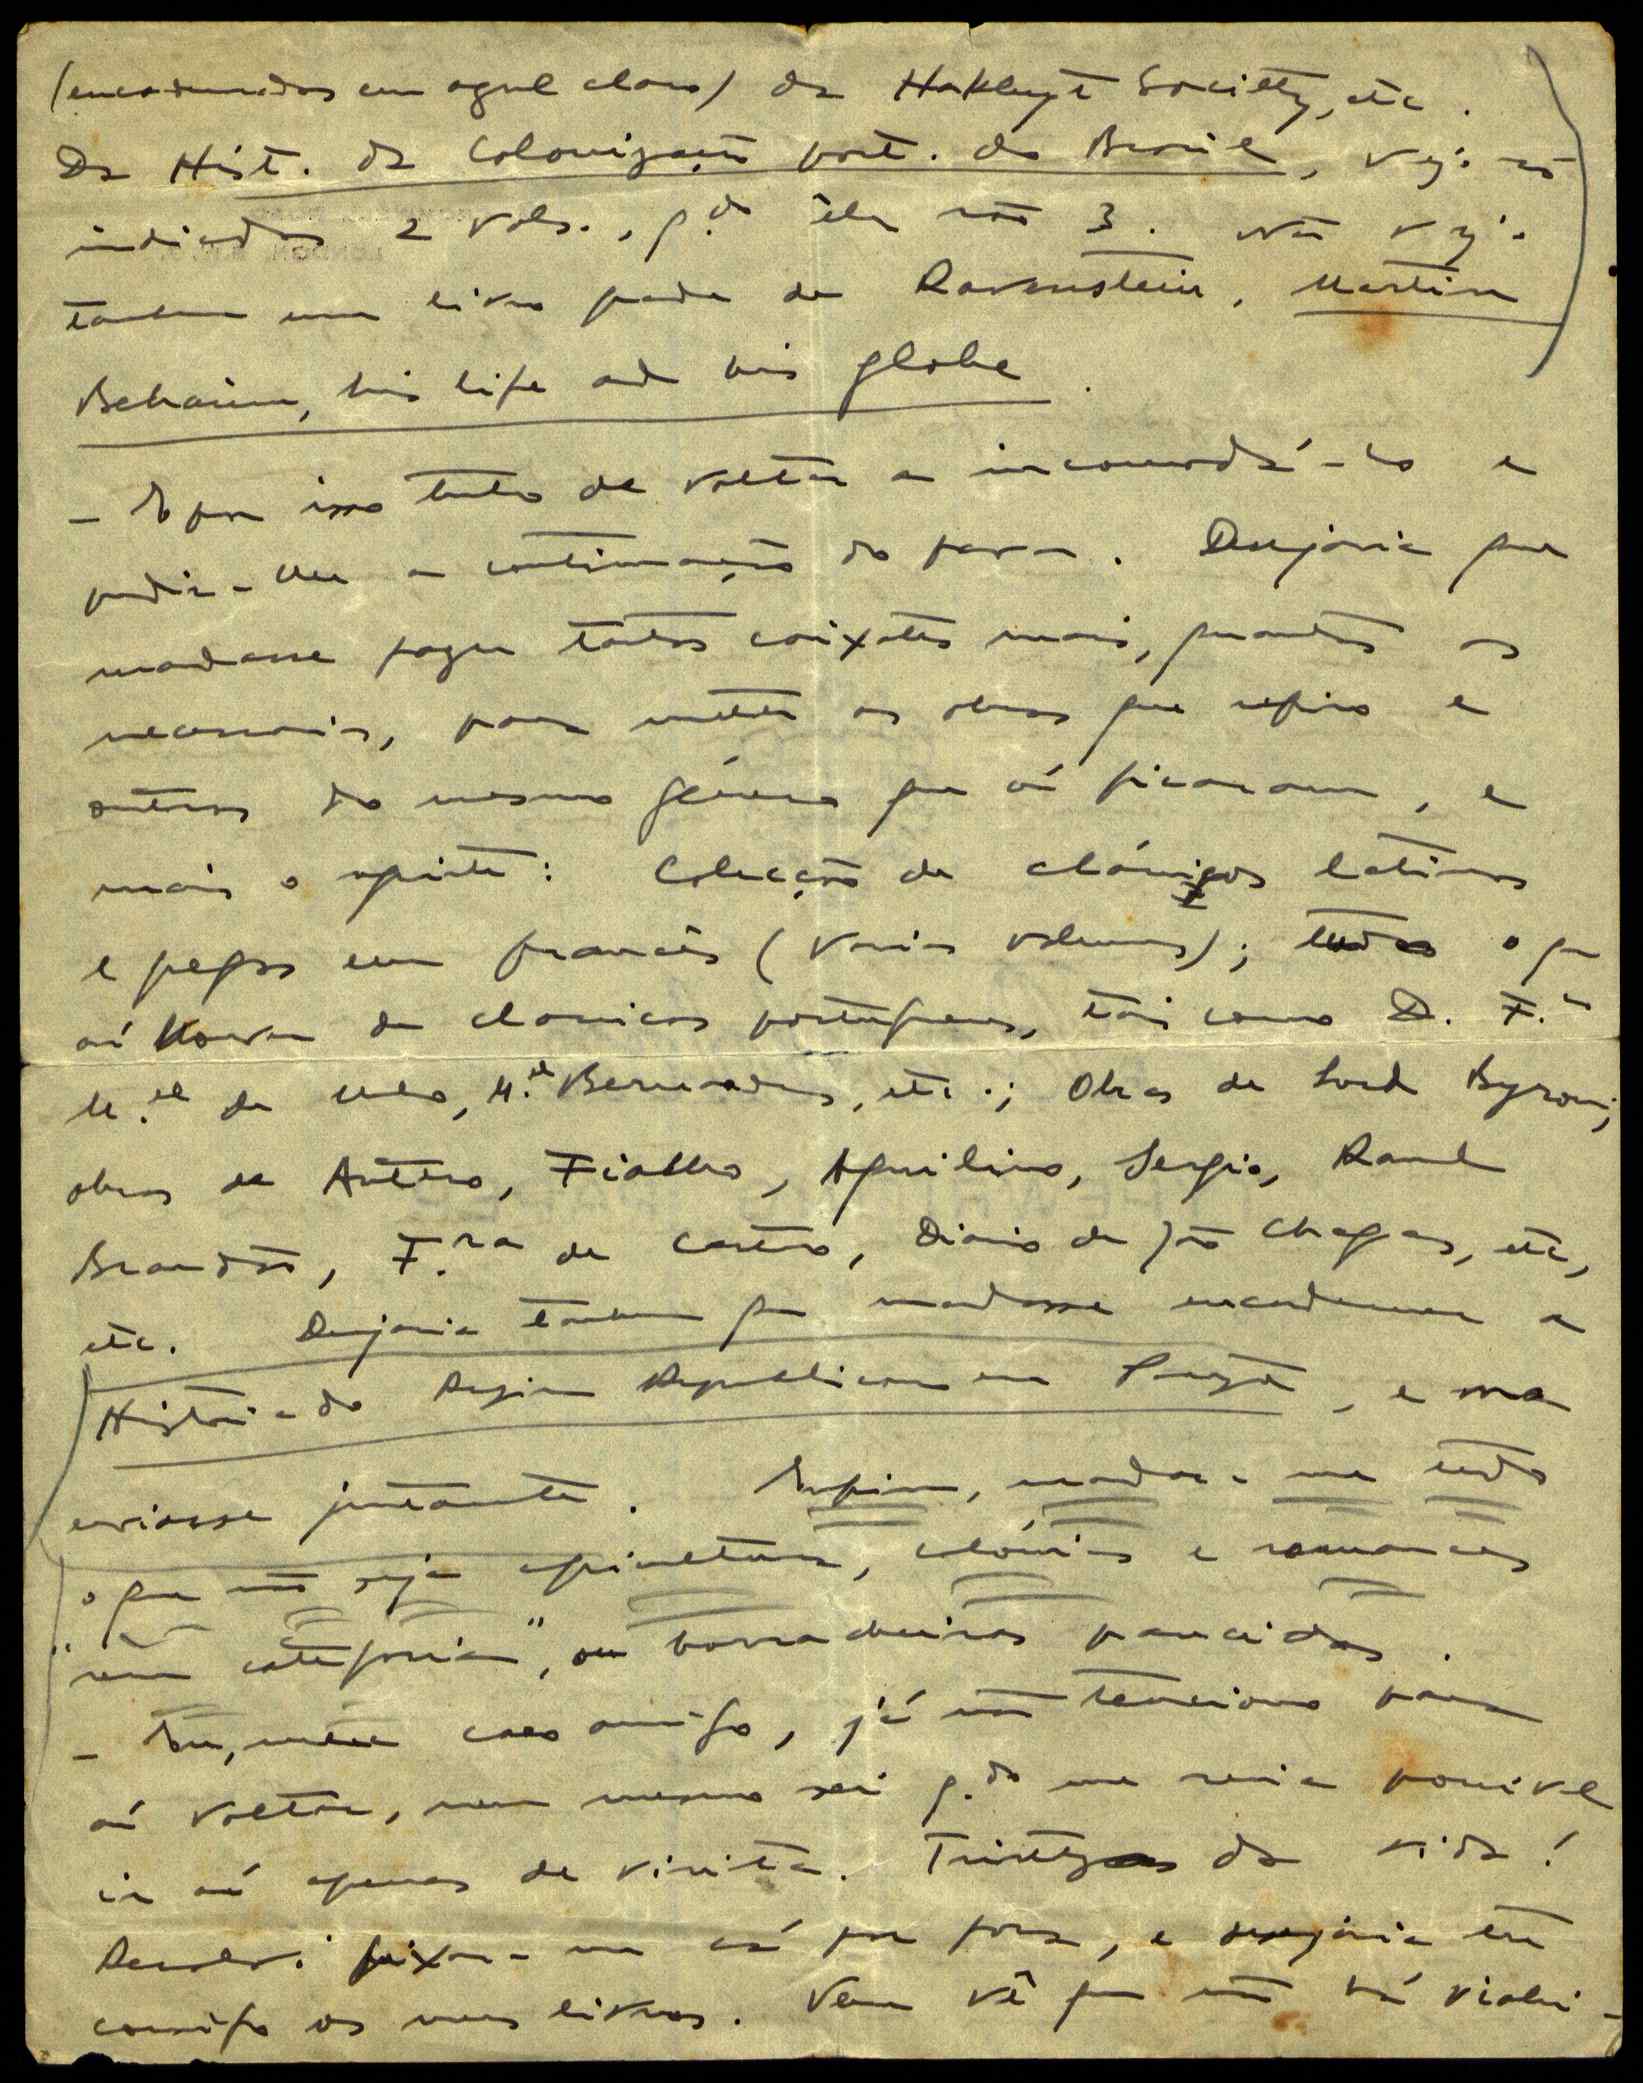 (encadernados em azul claro) da Hakluyt Society, etc.
Da Hist. da Colonização port. do Brasil, vejo só
indicados 2 vols., q.do êles são 3. Não vejo
tambem um livro grande de Ravenstein, Martin
Behaim, his life and his globe.
- É por isso tenho de voltar a incomodá-lo e
pedir-lhe a continuação do favor. Desejaria que
mandasse fazer tantos caixotes mais, quantos os
necessarios, para meter as obras que refiro e
outras do mesmo género que aí ficaram, e
mais o seguinte: Colecção de clássicos latinos
e gregos em francês (varios volumes); tudo o que
aí houver de classicos portugueses, tais como D. F.co
M.el de Melo, M.el Bernardes, etc.; Obras de Lord Byron;
obras de Antero, Fialho, Aquilino, Sergio, Raul
Brandão, F.ra de Castro, Diario de João Chagas, etc,
etc. Desejaria tambem que mandasse encadernar a
Historia do Regimen Republicano em Portugal, e ma
enviasse juntamente. Enfim, mandar-me tudo
o que não seja agricultura, colónias e romances
"sem categoria", ou borracheiras parecidas.
- Eu, meu caro amigo, já não tenciono para
aí voltar, nem mesmo sei q.do me seria possivel
ir aí apenas de visita. Tristezas da vida!
Resolvi fixar-me cá por fora, e desejaria ter
comigo os meus livros. Vem vê que não há viabi-